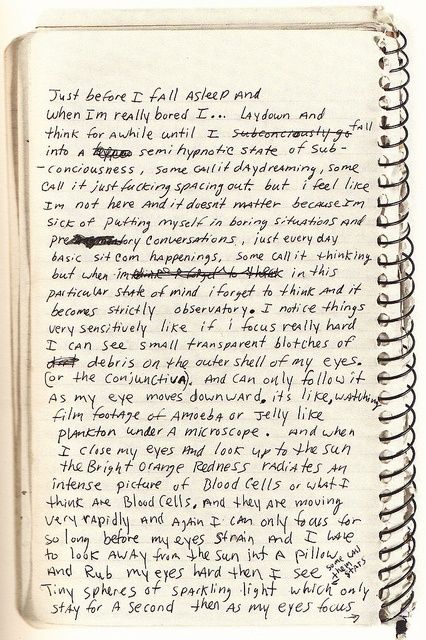 Just before I fall asleep and
when Im really bored I... Laydown And
think for awhile until I subconciously go fall
into a semi hypnotic state of sub-
-conciousness, some call it daydreaming, some
call it just fucking spacing out but i feel like
Im not here and it doesnt matter because Im
sick of putting myself in boring situations and
pre ory conversations, just every day
basic sit com happenings, some call it thinking
but when im in this
particular state of mind i forget to think and it
becomes strictly observatory. I notice things
very sensitively like if i focus really hard
I can see small transparent blotches of
debris on the outer shell of my eyes.
(or the conjunctiva). And can only follow it
as my eye moves downward, it's like, watching
film footage of Amoeba or Jelly like
plankton under A microscope. And when
I close my eyes and look up to the sun
the Bright orange Redness radiates an
intense picture of Blood cells or what I
think are Blood cells. And they are moving
very rapidly and again I can only focus for
so long before my eyes strain and I have
to look away from the sun int a pillow
and Rub my eyes hard then I see some call them stars
Tiny spheres of sparkling light which only
stay for a second then as my eyes focus